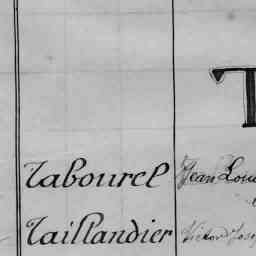 T
Tabourel Jean Loui
Taillandier Victor Jose